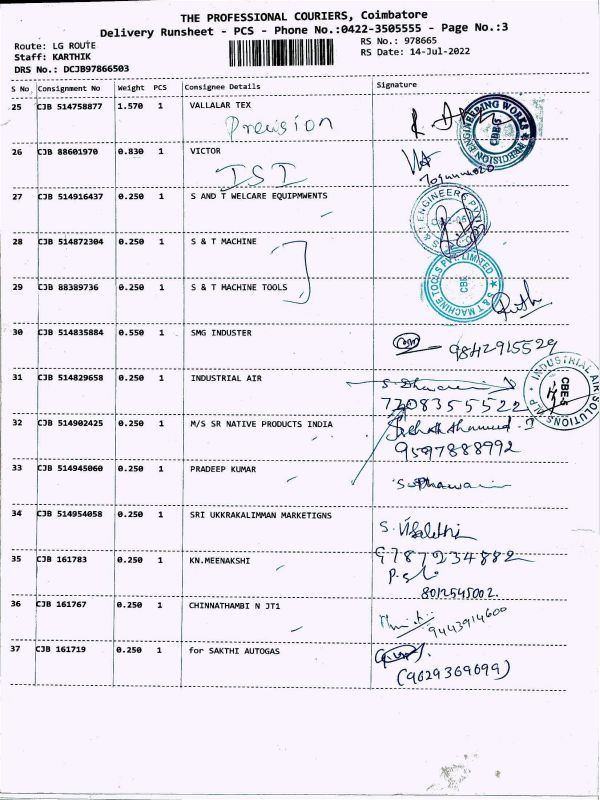 THE PROFESSIONAL COURIERS, Coimbatore
Delivery Runsheet - PCS - Phone No.:0422-3505555 - Page No.:3
Route: LG ROUTE
RS No.: 978665
Staff: KARTHIK
RS Date: 14-Jul-2022
DRS No.: DCJB97866503
S No Consignment No Weight PCS Consignee Details Signature
25 CJB 514758877 1.570 1 VALLALAR TEX
Precision
PRECISION ENGINEERING WORKS
CBE-5
26 CJB 88601970 0.830 1 VICTOR
IST
27 CJB 514916437 0.250 1 S AND T WELCARE EQUIPMWENTS
28 CJB 514872304 0.250 1 S & T MACHINE
29 CJB 88389736 0.250 1 S & T MACHINE TOOLS
S & T MACHINE TOOLS PVT. LIMITED
CBE
30 CJB 514835884 0.550 1 SMG INDUSTER
9842915529
31 CJB 514829658 0.250 1 INDUSTRIAL AIR
7708355522
INDUSTRIAL AIR SOLUTIONS LLP
CBE-5
32 CJB 514902425 0.250 1 M/S SR NATIVE PRODUCTS INDIA
9597888992
33 CJB 514945060 0.250 1 PRADEEP KUMAR
34 CJB 514954058 0.250 1 SRI UKKRAKALIMMAN MARKETIGNS
9787234882
35 CJB 161783 0.250 1 KN.MEENAKSHI
8012545002.
36 CJB 161767 0.250 1 CHINNATHAMBI N JT1
9443914600
37 CJB 161719 0.250 1 for SAKTHI AUTOGAS
(9629369699)